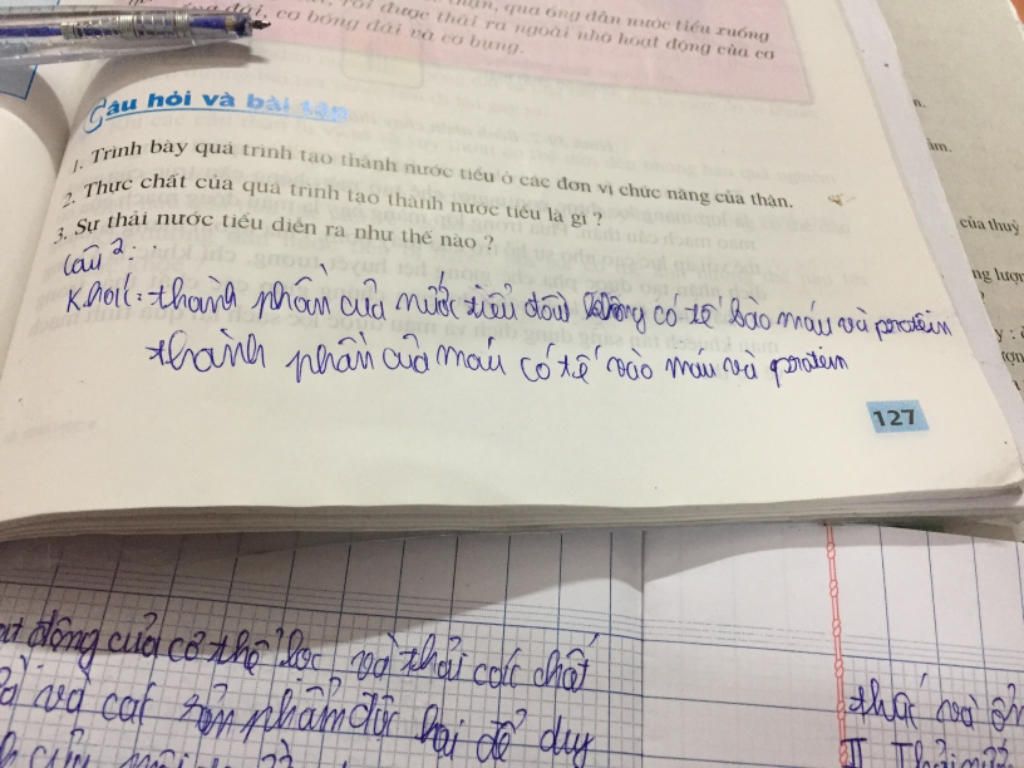 qua ống dẫn nước tiểu xuống
đái, rồi được thải ra ngoài nhờ hoạt động của cơ
đái, cơ bóng đái và cơ bụng.
Câu hỏi và bài tập
1. Trình bày quá trình tạo thành nước tiểu ở các đơn vị chức năng của thận.
2. Thực chất của quá trình tạo thành nước tiểu là gì ?
3. Sự thải nước tiểu diễn ra như thế nào ?
Câu 2:
Khác: thành phần của nước tiểu đầu không có tế bào máu và protein
thành phần của máu có tế vào máu và protein
127
của thuỷ
động của cơ thể lọc và thải các chất
và các sản phẩm độc hại để duy
thác và ổn
II